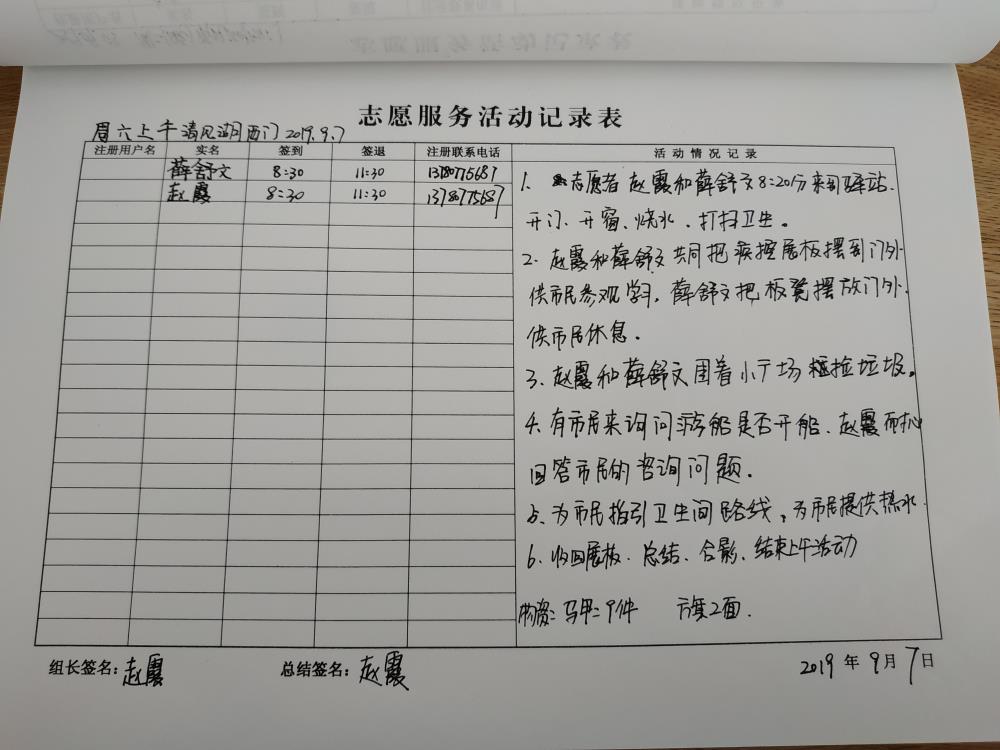 志愿服务活动记录表
周六上午清风湖西门 2019.9.7
注册用户名 实名 签到 签退 注册联系电话 活动情况记录
薛舒文 8:30 11:30 13780775687
赵霞 8:30 11:30 13780775687
1. 志愿者赵霞和薛舒文8:20分来到驿站、
开门、开窗、烧水、打扫卫生。
2. 赵霞和薛舒文共同把疾控展板摆到门外
供市民参观学习,薛舒文把板凳摆放门外、
供市民休息。
3、赵霞和薛舒文围着小广场捡垃圾。
4、有市民来询问游船是否开船、赵霞耐心
回答市民的咨询问题。
5、为市民指引卫生间路线,为市民提供热水.
6、收回展板、总结、合影、结束上午活动
物资:马甲:9件 方旗2面.
组长签名:赵霞 总结签名:赵霞 2019年9月7日